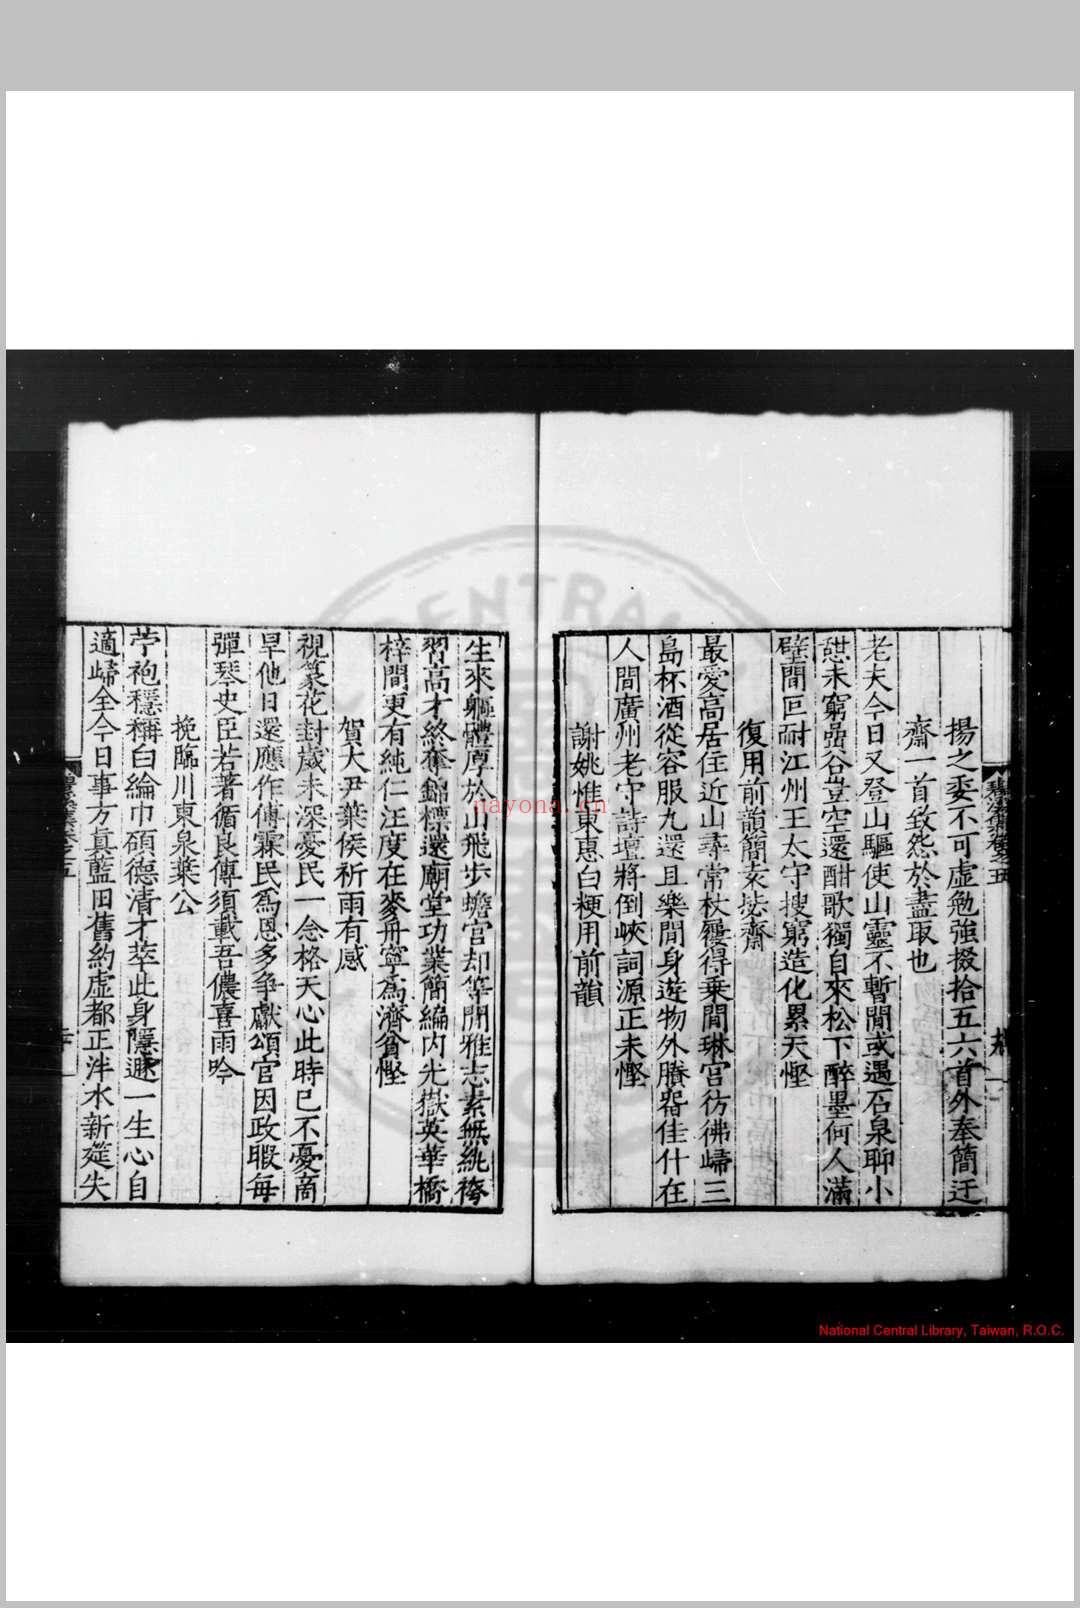 揚之委不可虛勉強掇拾五六首外奉簡迂
齋一首致怨於盡取也
老夫今日又登山驅使山靈不暫閒或遇石泉聊小
憇未窮嵓谷豈空還酣歌獨自來松下醉墨何人滿
壁間叵耐江州王太守搜窮造化累天慳
復用前韻簡來毖齋
最愛高居住近山尋常杖屨得乘閒琳宮彷彿歸三
島杯酒從容服九還且樂閒身遊物外賸窹佳什在
人間廣州老守詩壇將倒峽詞源正未慳
謝姚惟東惠白粳用前韻
生來軀體厚於山飛步蟾宮却等閒雅志素無紈袴
習高才終奪錦標還廟堂功業簡編內光嶽英華橋
梓間更有純仁汪度在麥舟寧為濟貧慳
賀大尹葉侯祈雨有感
視篆花封歲未深憂民一念格天心此時已不憂商
旱他日還應作傅霖民為恩多爭獻頌官因政暇每
彈琴史臣若著循良傳須載吾儂喜雨吟
挽臨川東泉葉公
苧袍穩稱白綸巾碩德清才萃此身隱遯一生心自
適歸全今日事方真藍田舊約虛都正泮水新筵失
nayona.cn
National Central Library, Taiwan, R.O.C.